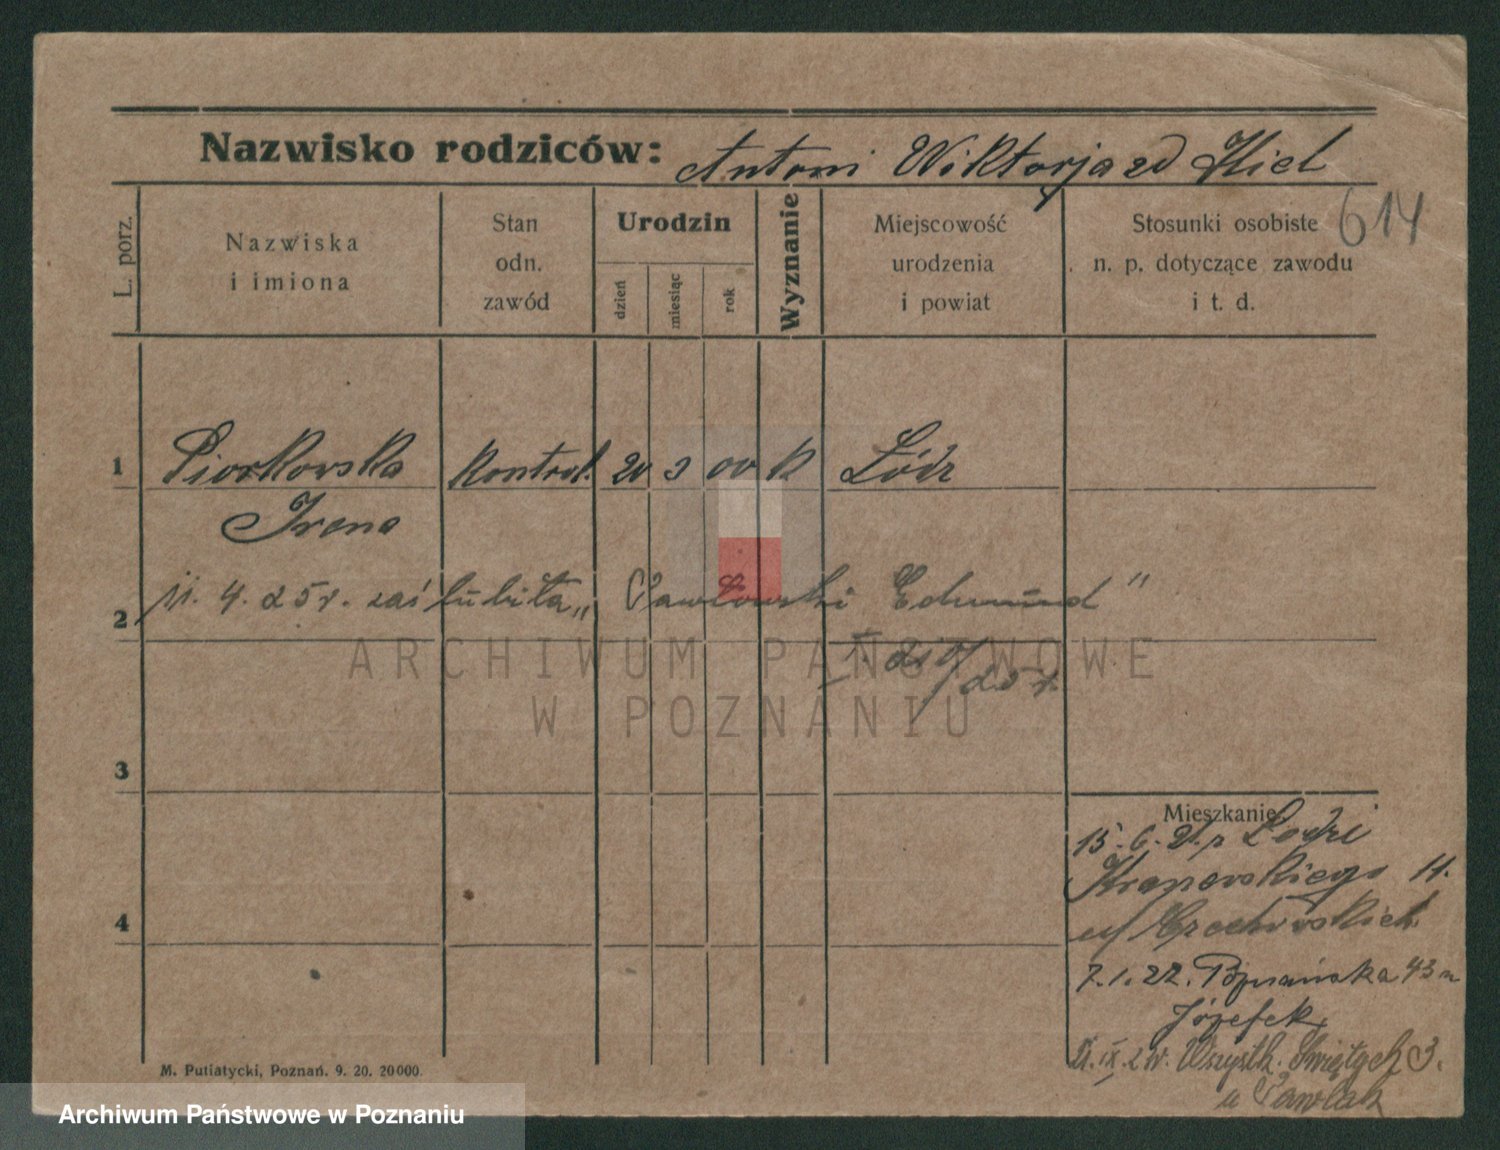 Nazwisko rodziców: Antoni Wiktorja zd Kiel
614
L. porz.
Nazwiska
i imiona
Stan
odn.
zawód
Urodzin
dzień
miesiąc
rok
Wyznanie
Miejscowość
urodzenia
i powiat
Stosunki osobiste
n. p. dotyczące zawodu
i t. d.
1 Piorkowska kontrol. 20 3 00 k Łódź
Irena
2 11. 4. 25 r. zaślubiła „Pawłowski Edmund"
25 r.
3
4
Mieszkanie
15. 6. 21. z Łodzi
11.
u/
7.1.22. Poznańska 43
Józefek
IX. Wszystk. Świętych 3.
u Pawlak
M. Putiatycki, Poznań. 9. 20. 20000.
ARCHIWUM PAŃSTWOWE
W POZNANIU
Archiwum Państwowe w Poznaniu